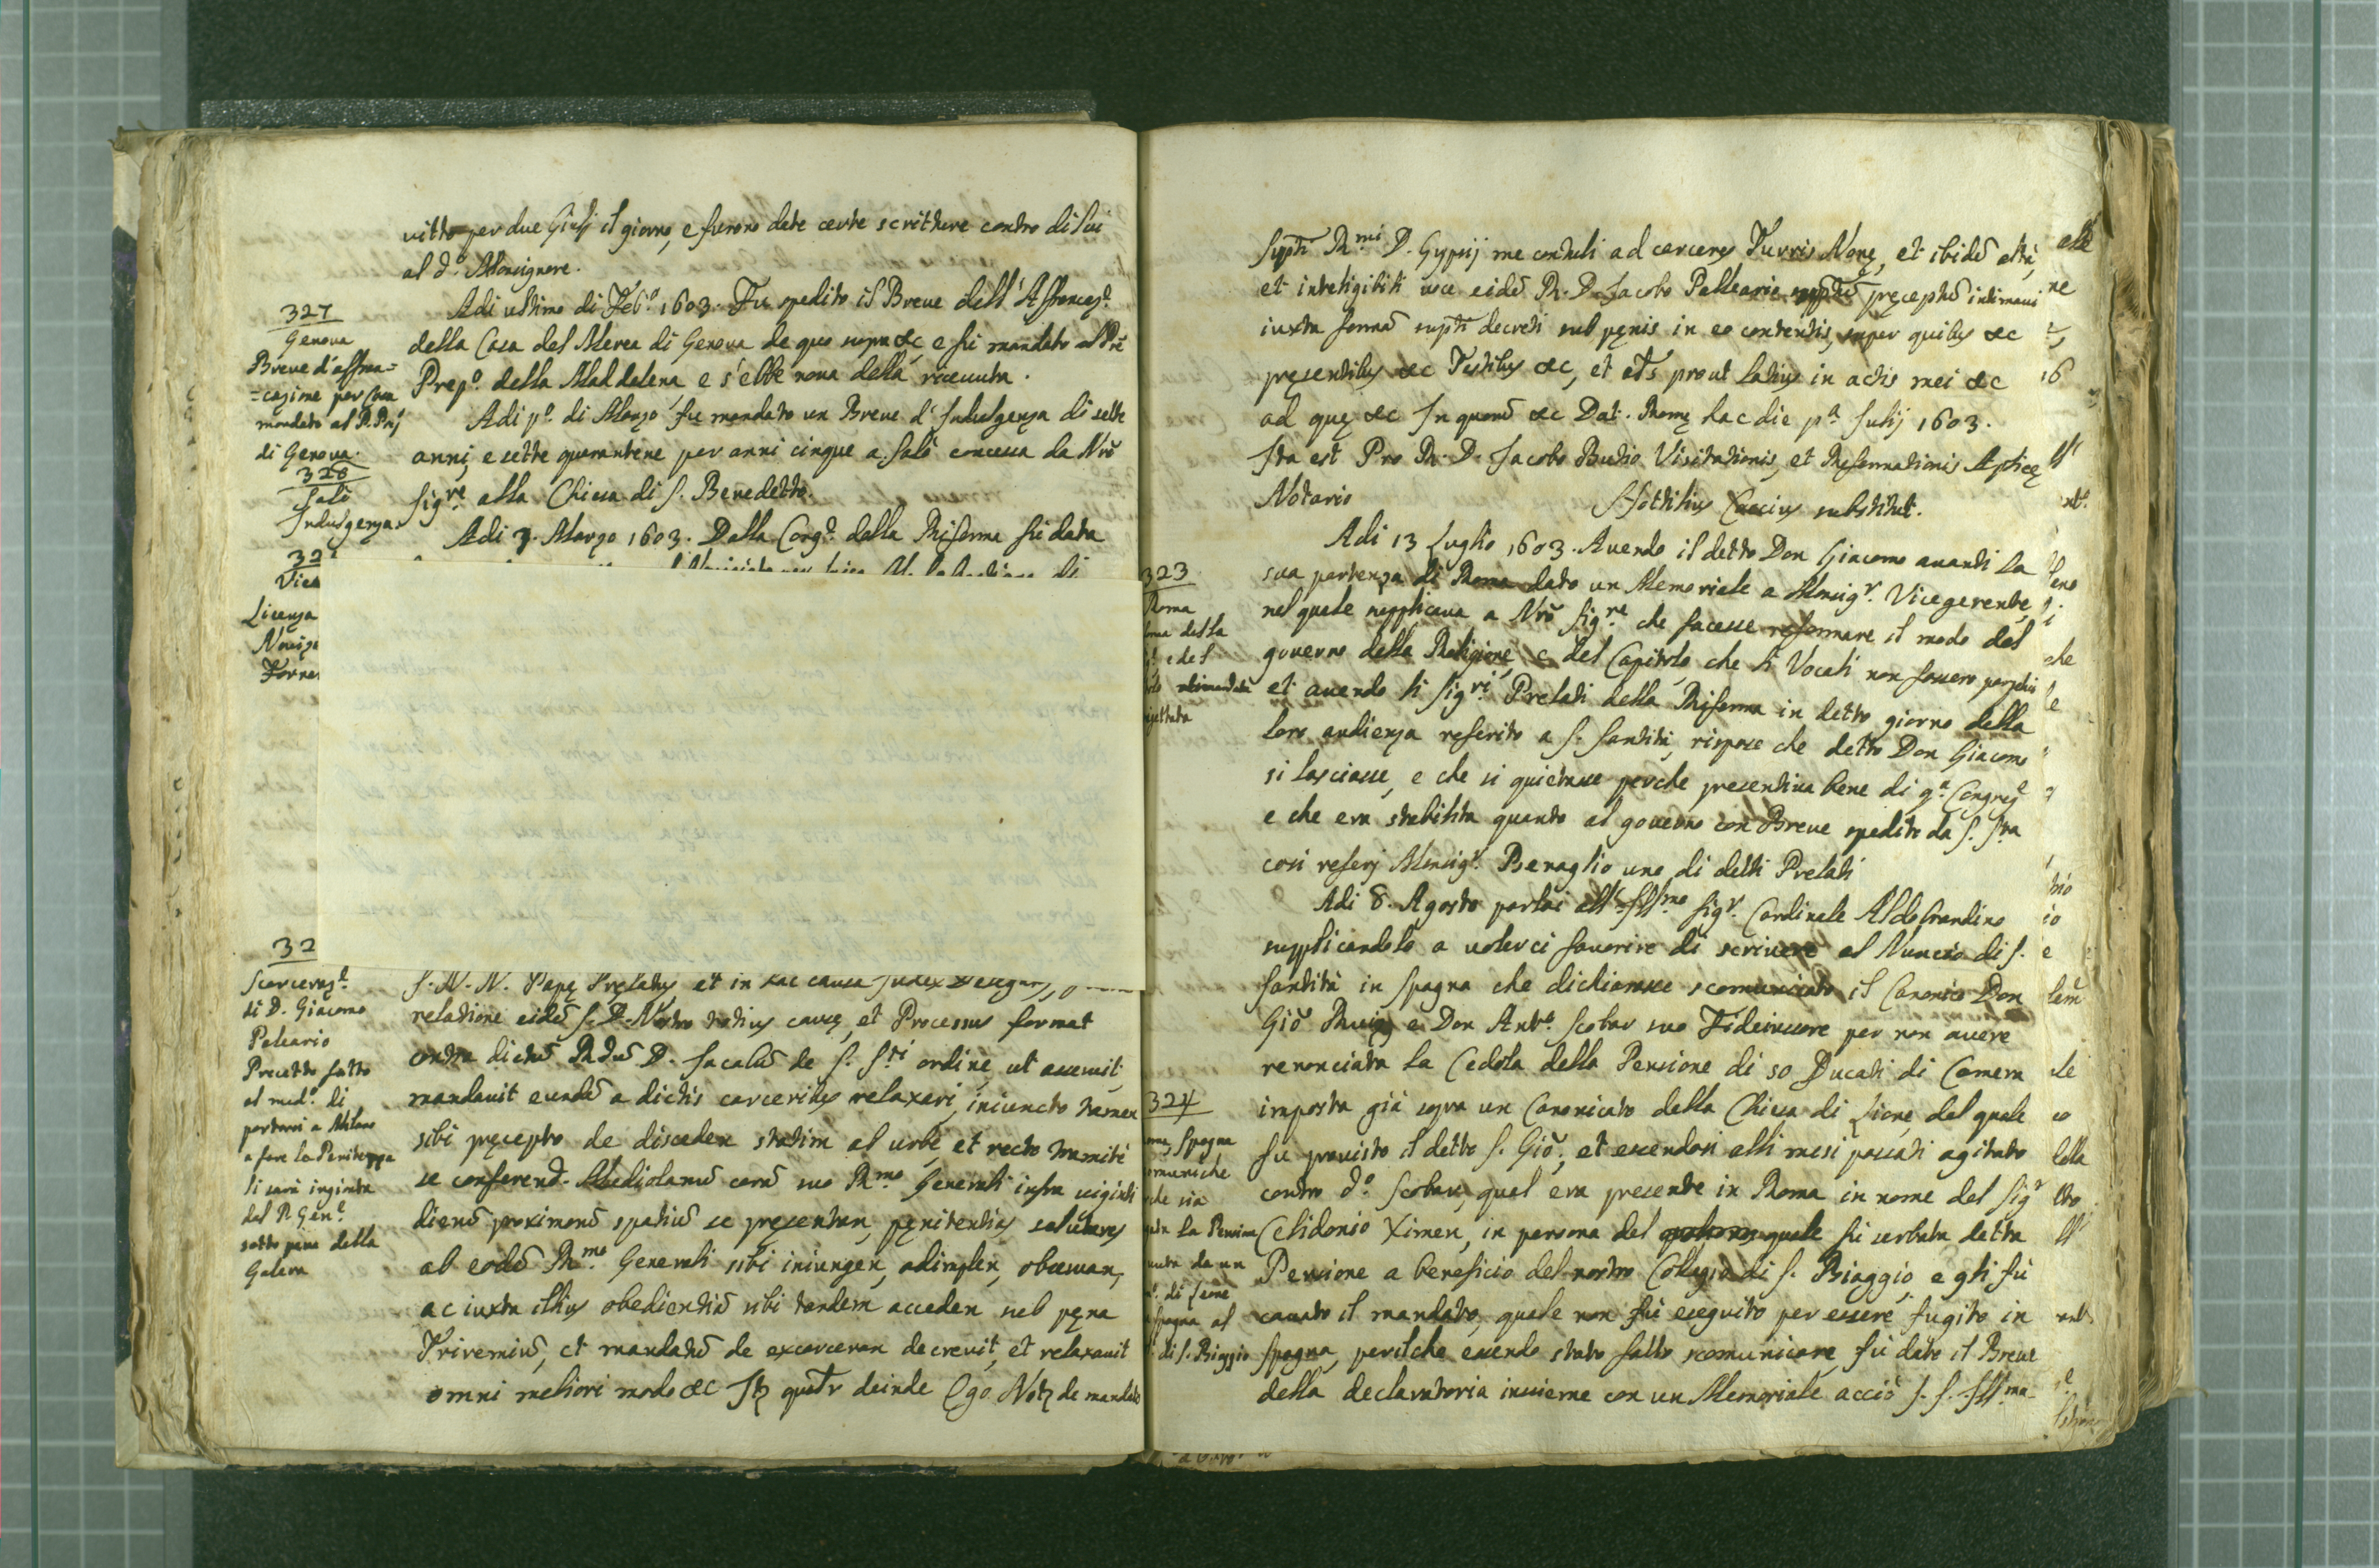 vitto per due Giulj il giorno, e furono date certe scritture contro di lui
al d.º Monsignore.
327
Genova
Breve d'affran=
=cazione per Casa
mandato al P. Prẽ
di Genova.
Adi ultimo di Feb.º 1603. Fu spedito il Breve dell'Affrancaz.e
della Casa del Merea di Genova de quo supra &c e fu mandato al Prẽ
Prep.º della Maddalena e s'ebbe nova della riceuuta.
328
Salò
Indulgenza.
Adi p.º di Marzo fu mandato un Breve d'Indulgenza di sette
anni, e sette quarantene per anni cinque a Salò concessa da Nrõ
Sig.re alla Chiesa di S. Benedetto.
Adi 3. Marzo 1603. Dalla Cong.e della Riforma fu data
32
Vice
Licenza
Noviz
Torre
32
Scarceraz.e
di D. Giacomo
Paleario
Precetto fatto
al med.º di
portarsi a Milano
a fare la Penitenza
li sarà ingionta
dal P. Gen.e
sotto pena della
Galera
S. N. N. Papę Pręlatus et in hac causa Judex
relatione eidẽ S. D. Nostro totius causę, et Processus format
contra dictũ Rdũ D. Jacobũ de S. Sti ordine, ut asseruit,
mandavit eundẽ a dictis carceribus relaxari, iniuncto tamen
sibi pręcepto de disceden statim ab urbe, et recto tramite
se conferend. Mediolanũ corã suo Rmo Generali infra viginti
dierũ proximorũ spatiũ se pręsentan, pęnitentias salutares
ab eodẽ Rmo Generali sibi iniungen, adimplen, observan,
ac iuxta illius obedientiã sibi tandem acceden sub pęna
Triremiũ, et mandatũ de excarceran decrevit, et relaxavit
omni meliori modo &c deinde Ego de mandato
Rmi D. Gypsij me contuli ad carceres Turris Nonę, et ibidẽ altà,
et inteligibili voce eidẽ R. D. Jacobo Palleario pręceptũ intimavi
iuxta formã decreti sub pęnis in eo contentis, super quibus &c
pręsentibus &c Testibus &c, et prout latius in actis mei &c
ad quę &c In quorũ &c Dat. Romę hac die p.a Julij 1603.
Ita est Pro R. D. Jacobo Butio Visitationis, et Reformationis Aplicę
Notario Caccius substitut.
323
Roma
della
e del
Adi 13 Luglio 1603. Avendo il detto Don Giacomo avanti la
sua partenza di Roma dato un Memoriale a Monsig.r Vicegerente,
nel quale supplicava a Nrõ Sig.re che facesse reformare il modo del
governo della Religione, e del Capitolo, che li Vocali non fossero perpetui
et avendo li Sig.ri Prelati della Riforma in detto giorno della
loro audienza referito a S. Santità, rispose che detto Don Giacomo
si lasciasse, e che si quietasse perche presentiva bene di q.a Congreg.e
e che era stabilita quanto al governo con Breve spedito da S. Sta
cosi referj Monsig.r Benaglio uno di detti Prelati
Adi 8. Agosto parlai all'Illmo Sig.r Cardinale Aldobrandino
supplicandolo a volerci favorire di scrivere al Nuncio di S.
Santità in Spagna che dichiarasse scomunicato il Canonico Don
Giõ Ruiz e Don Ant.º Scobar suo Fideiussore per non avere
renonciata la Cedola della Pensione di 50 Ducati di Camera
324
Spagna
imposta già sopra un Canonicato della Chiesa di Lione, del quale
fu provisto il detto S. Giõ, et essendosi alli mesi passati agitato
contro d.º Scobar, qual era presente in Roma in nome del Sig.r
Celidonio Ximen, in persona del quale fu serbata detta
Pensione a beneficio del nostro Collegio di S. Biaggio, e gli fù
cavato il mandato, quale non fù eseguito per essere fugito in
Spagna, perilche essendo stato fatto scomunicare, fu dato il Breve
della declaratoria insieme con un Memoriale acciò S. S. Illma
la Pensione
da un
di Leone
Spagna al
di S. Biaggio